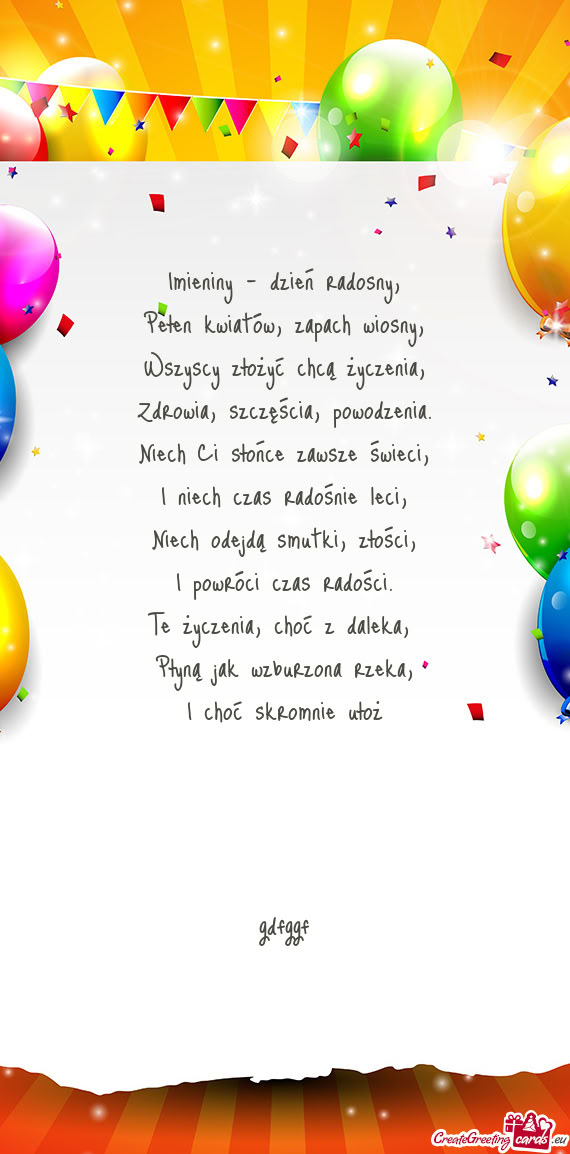 Imieniny - dzień radosny,
Pełen kwiatów, zapach wiosny,
Wszyscy złożyć chcą życzenia,
Zdrowia, szczęścia, powodzenia.
Niech Ci słońce zawsze świeci,
I niech czas radośnie leci,
Niech odejdą smutki, złości,
I powróci czas radości.
Te życzenia, choć z daleka,
Płyną jak wzburzona rzeka,
I choć skromnie ułoż
gdfggf
CreateGreetingcards.eu